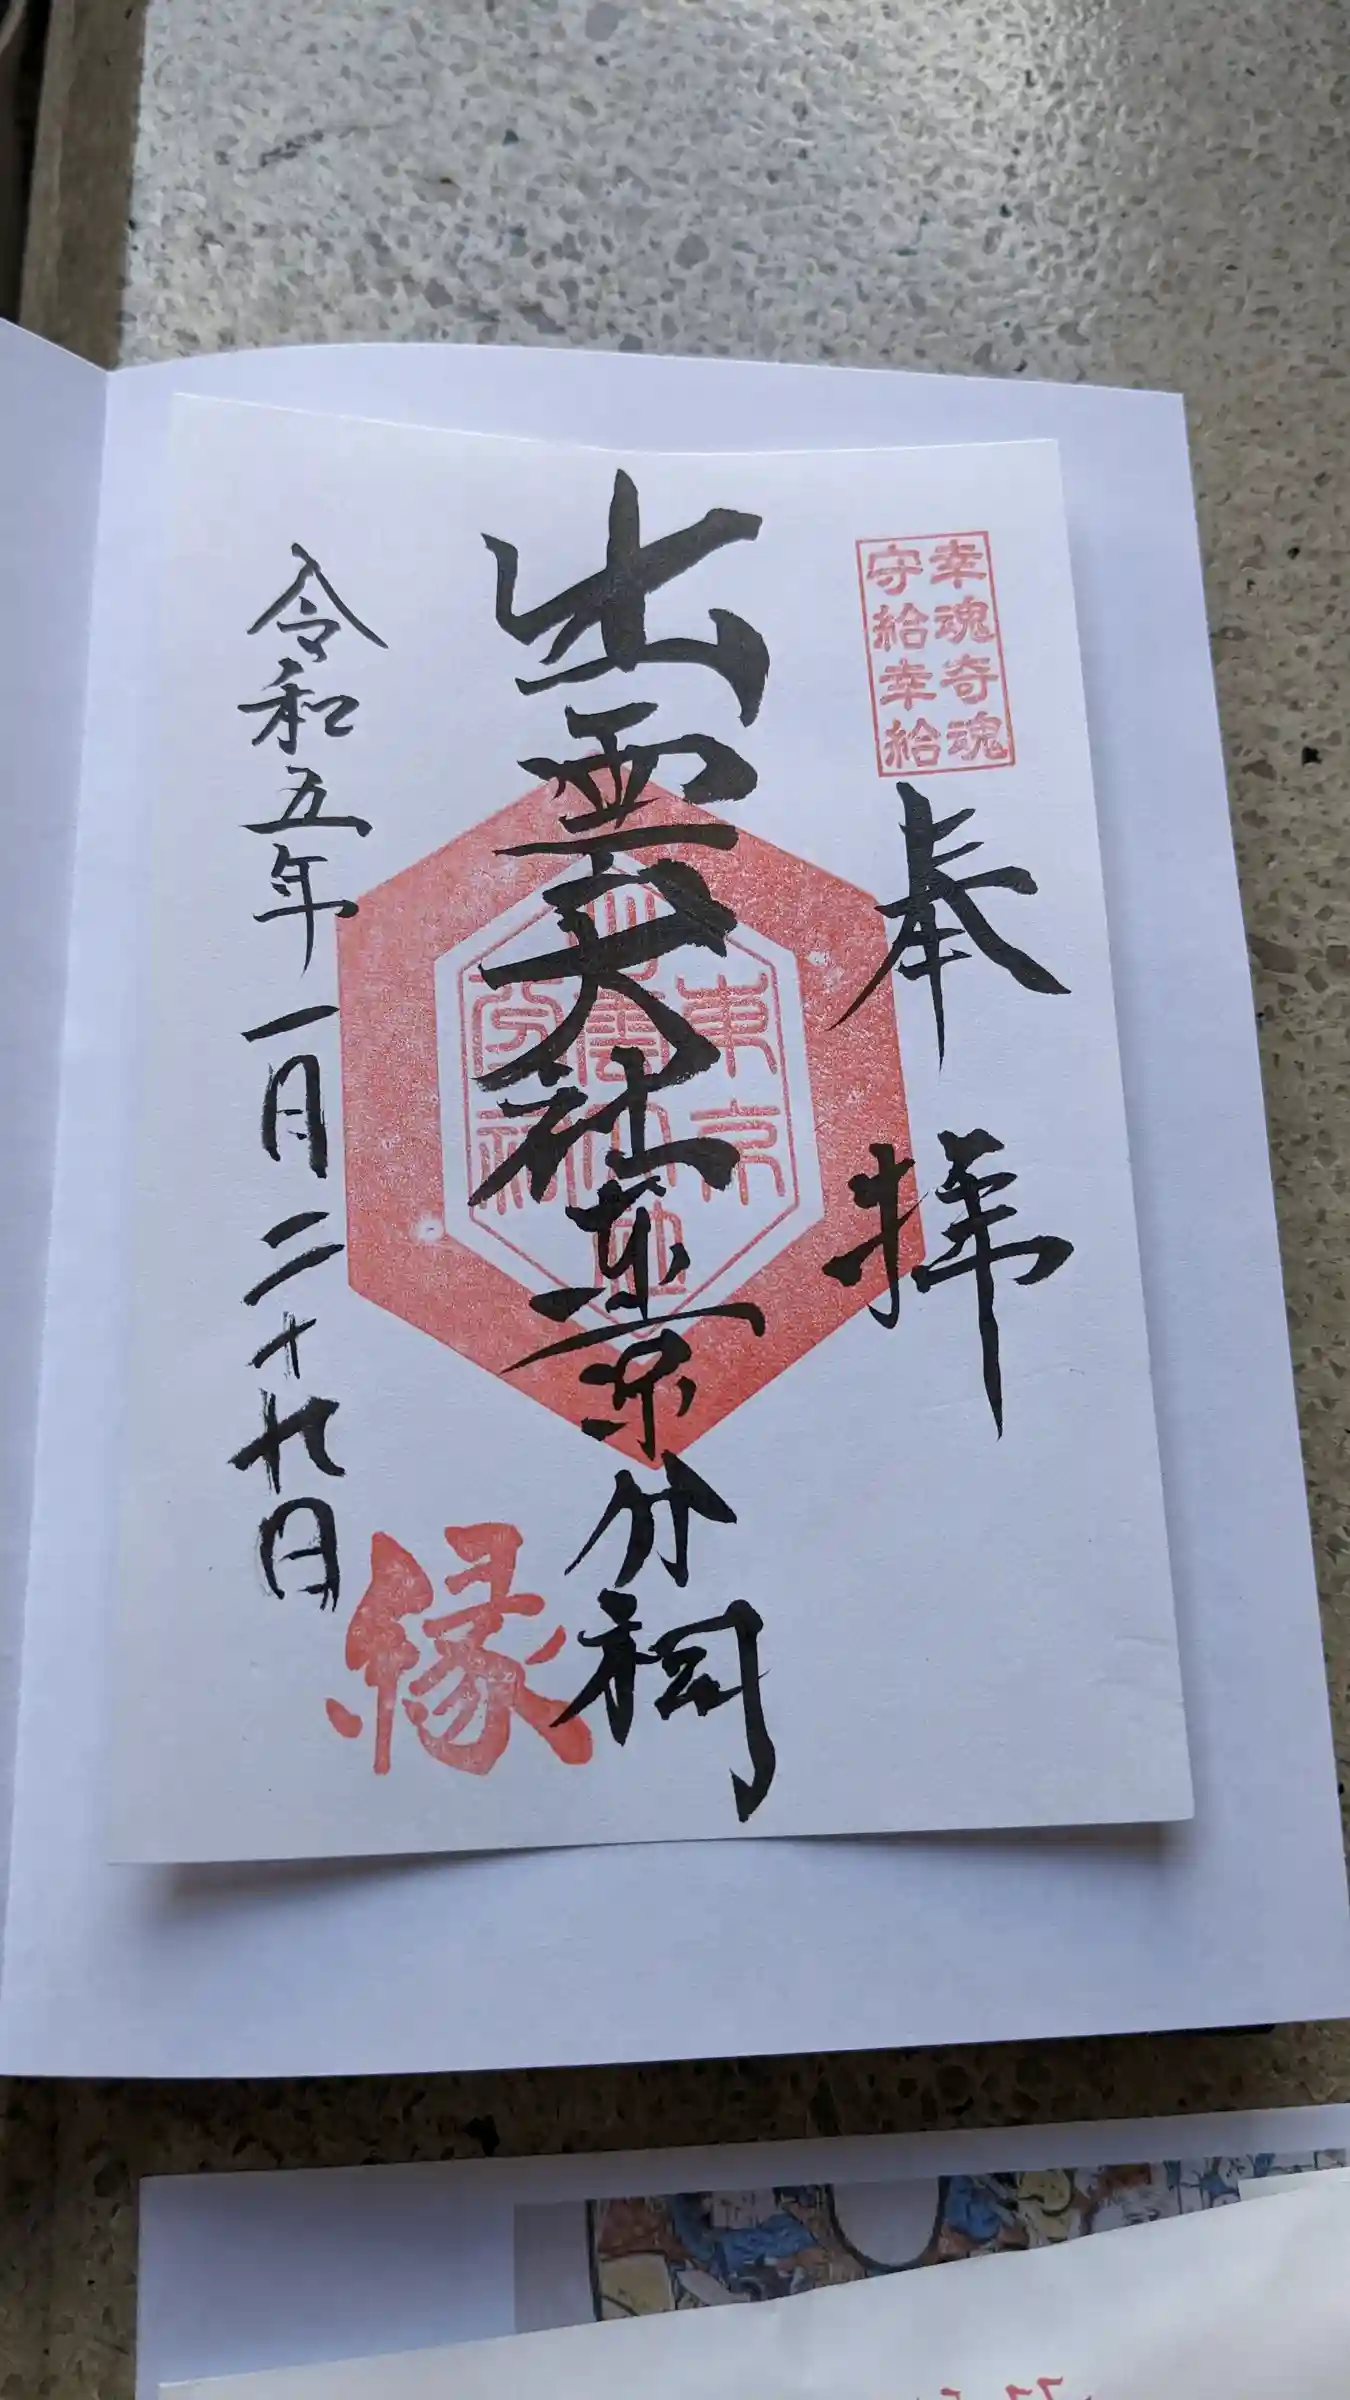 幸魂奇魂
守給幸給
奉拝
出雲大社東京分祠
東京
出雲大社
分祠
令和五年一月二十九日
縁